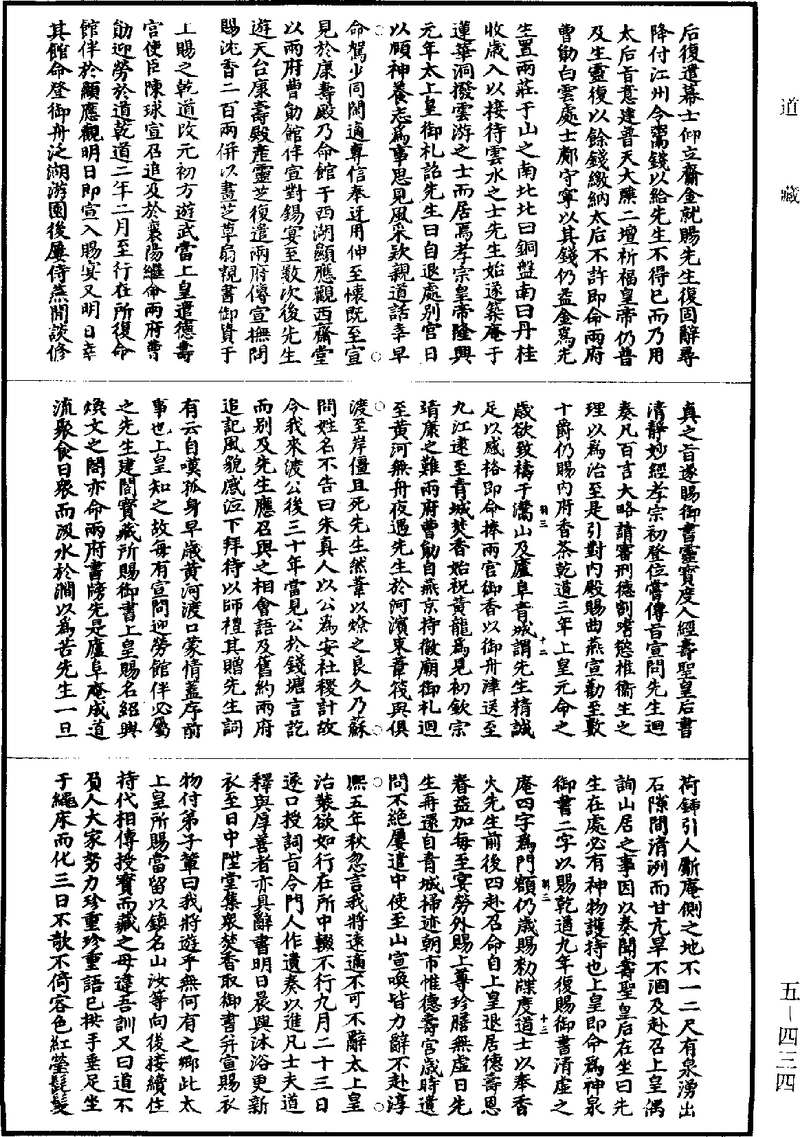 道藏
后復遣幕士仰立齋金就賜先生復固辭尋
降付江州令鬻錢以給先生不得已而乃用
太后旨意建普天大醮二壇祈福皇帝仍普
及生靈復以餘錢繳納太后不許即命兩府
曹勛白雲處士鄭守寧以其錢仍益金爲先
生置兩莊于山之南北北曰銅盤南曰丹桂
收歲入以接待雲水之士先生始遂築庵于
蓮華洞撥雲游之士而居焉孝宗皇帝隆興
元年太上皇御札詔先生曰自退處別宮日
以頤神養志爲事思見風采款親道話幸早
命駕少同閑適專信奉迓用伸至懷既至宣
見於康壽殿乃命館于西湖顯應觀西齋堂
以兩府曹勛館伴宣對錫宴至數次後先生
遊天台康壽殿產靈芝復遣兩府傳宣撫問
賜沈香二百兩併以畫芝草扇親書御贊于
上賜之乾道改元初方遊武當上皇遣德壽
宮使臣陳球宣召追及於襄陽繼命兩府曹
勛迎勞於道乾道二年二月至行在所復命
館伴於顯應觀明日即宣入賜宴又明日幸
其館命登御舟泛湖游園後屢侍燕閒談修
真之旨遂賜御書靈寶度人經壽聖皇后書
清靜妙經孝宗初登位嘗傳旨宣問先生迴
奏凡百言大略請審刑德割嗜慾推衛生之
理以爲治至是引對內殿賜曲燕宣勸至數
十爵仍賜內府香茶乾道三年上皇元命之
歲欲致禱于灊山及廬阜青城謂先生精誠
足以感格即命捧兩宮御香以御舟津送至
九江逮至青城焚香始祝黃龍爲見初欽宗
靖康之難兩府曹勛自燕京持徽廟御札迴
至黃河無舟夜遇先生於河濱束葦筏與俱
渡至岸僵且死先生然葦以燎之良久乃蘇
問姓名不告曰朱真人以公為安社稷計故
令我來渡公後三十年當見公於錢塘言訖
而別及先生應召與之相會語及舊約兩府
追記風貌感泣下拜待以師禮其贈先生詞
有云自嘆孤身早歲黃河渡口蒙情蓋序前
事也上皇知之故每有宣問迎勞館伴必屬
之先生建閣寶藏所賜御書上皇賜名紹興
煥文之閣亦命兩府書牓先是廬阜庵成道
流聚食日衆而汲水於澗以爲苦先生一旦
荷鍤引人斸庵側之地不一二尺有泉湧出
石隙間清洌而甘亢旱不涸及赴召上皇偶
詢山居之事因以奏聞壽聖皇后在坐曰先
生在處必有神物護持也上皇即命爲神泉
御書二字以賜乾道九年復賜御書清虛之
庵四字爲門額仍歲賜勑牒度道士以奉香
火先生前後四赴召命自上皇退居德壽恩
眷益加每至宴勞外賜上尊珍膳無虛日先
生再還自青城掃迹朝市惟德壽宮歲時遣
問不絕屢遣中使至山宣喚皆力辭不赴淳
熙五年秋忽言我將遠適不可不辭太上皇
治裝欲如行在所中輟不行九月二十三日
遂口授詞旨令門人作遺奏以進凡士夫道
釋與厚善者亦具辭書明日晨興沐浴更新
衣至日中陞堂集衆焚香取御書并宣賜衣
物付弟子輩曰我將遊乎無何有之鄉此太
上皇所賜當留以鎮名山汝等向後接續住
持代相傳授寶而藏之毋違吾訓又曰道不
負人大家努力珍重珍重語已拱手垂足坐
于繩床而化三日不欹不倚容色紅瑩髭髮
羽三
十二
羽三
十三
五－四三四